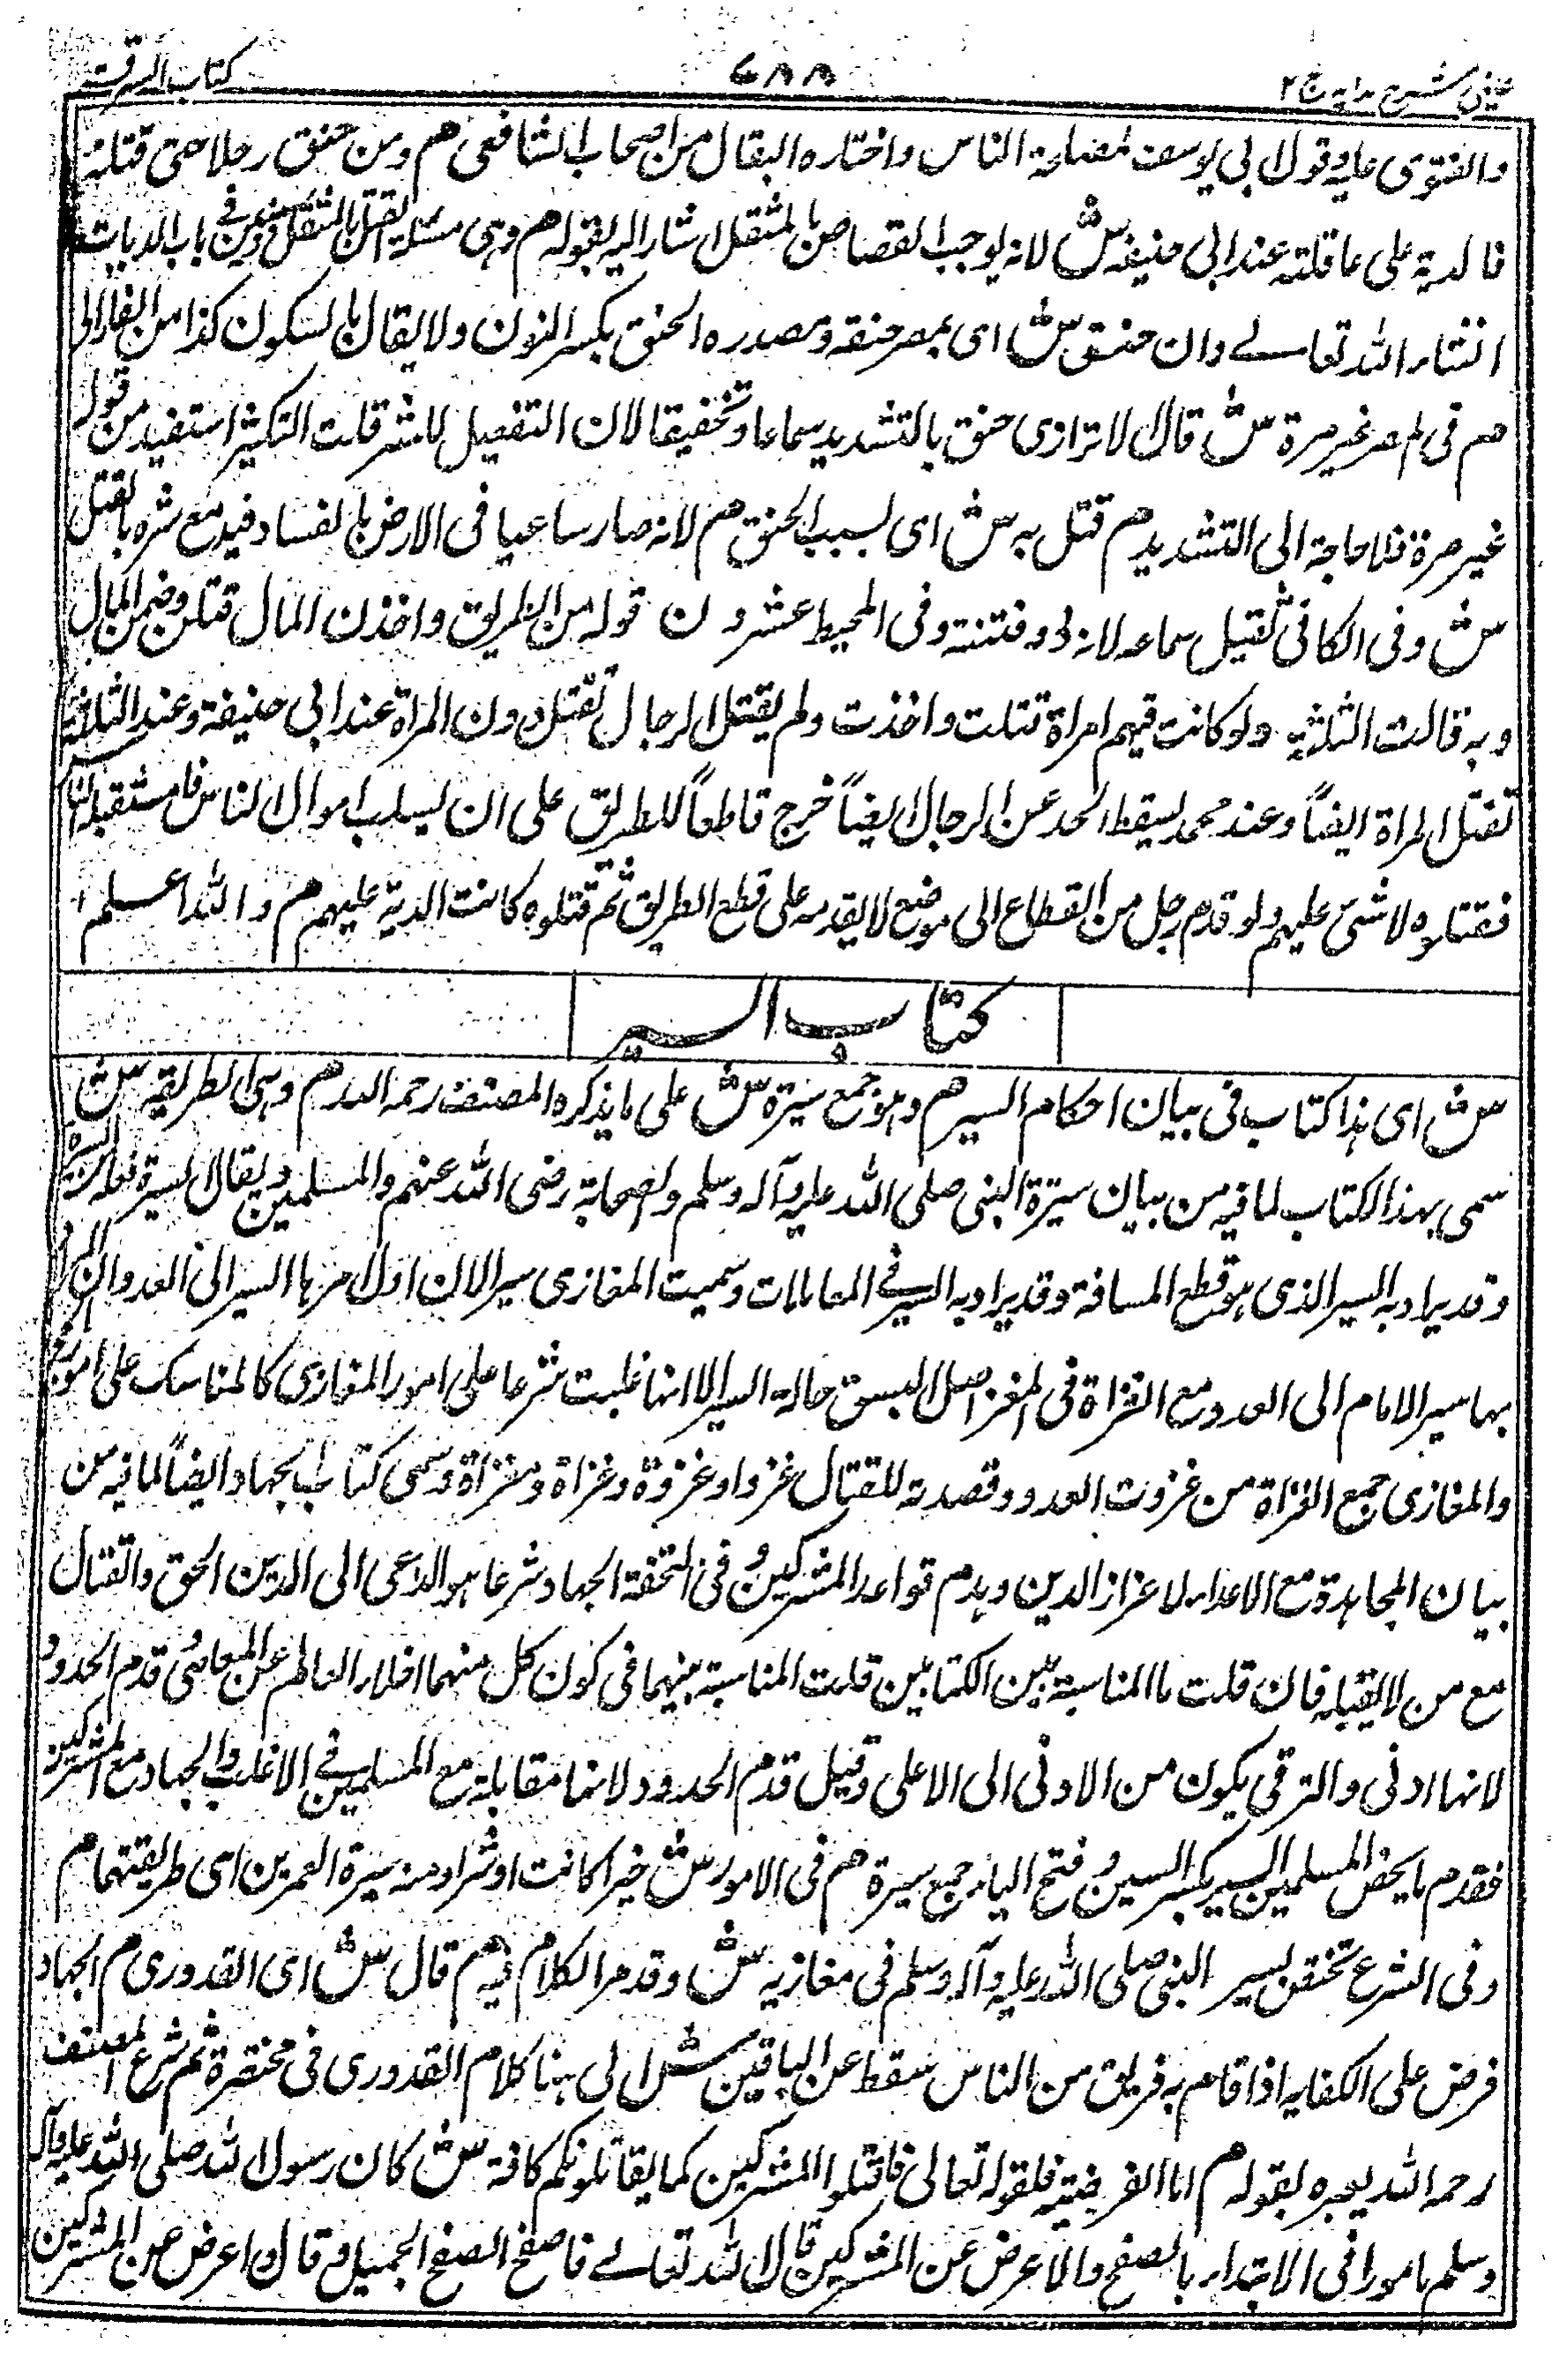 عینی شرح ہدایہ ج ۲
۷۸۸
کتاب السرقۃ
والفتوى على قول ابی یوسف لمصلحة الناس واختاره البقال من اصحاب الشافعی هم ومن خنق رجلا حتى قتله
فالدیة على عاقلته عند ابی حنیفة ش لانه یوجب القصاص بالمثقل اشار الیه بقوله هم وهی مسئلة القتل بالمثقل وسنبین فی باب الدیات
انشاء الله تعالے وان خنق ش ای بمصر خنقه ومصدره الخنق بكسر النون ولا یقال بالسكون كذا من الفارابی
هم فی المصر غیر مرة ش قال الاترازی خنق بالتشدید سماعا وتخفیفا لان التفعیل للتكثیر قلت التكثیر استفید من قوله
غیر مرة فلا حاجة الى التشدید هم قتل به ش ای بسبب الخنق هم لانه صار ساعیا فی الارض بالفساد فیدفع شره بالقتل
ش وفی الكافی لانه ذو فتنة وفی المحیط عشرون الطریق واخذن المال قتلن وضمن المال
وبه قالت الثلاثة ولو كانت فیهم امراة قتلت واخذت ولم یقتل الرجال تقتل دون المراة عند ابی حنیفة وعند الثلاثة
تقتل المراة ایضاً وعند محمد یسقط الحد عن الرجال ایضاً خرج قاطعاً للطریق على ان یسلب اموال الناس فاستقبله الناس
فقتلوه لا شئ علیهم ولو قدم رجل من القطاع الى موضع لا یقدمه على قطع الطریق ثم قتلوه كانت الدیة علیهم هم والله اعلم
كتاب السیر
ش ای هذا كتاب فی بیان احكام السیر هم وهو جمع سیرة ش على ما یذكره المصنف رحمه الله هم وهی الطریقة ش
سمی بهذا الكتاب لما فیه من بیان سیرة النبی صلى الله علیه وآله وسلم والصحابة رضی الله عنهم والمسلمین ویقال السیرة فعلة من السیر
وقد یراد به السیر الذی هو قطع المسافة وقد یراد به السیر فی المعاملات وسمیت المغازی سیرا لان اول امرها السیر الى العدو وان المراد
بها سیر الامام الى العدو مع الغزاة فی الغزو حالة السیر الا انها غلبت شرعا على امور المغازی كالمناسك على امور الحج
والمغازی جمع الغزاة من غزوت العدو وقصدته للقتال غزوا وغزوة وغزاة ومغزاة وسمی كتاب الجهاد ایضاً لما فیه من
بیان المجاهدة مع الاعداء لاعزاز الدین وهدم قواعد المشركین وفی التحفة الجهاد شرعا هو الدعی الى الدین الحق والقتال
مع من لا یقبله فان قلت ما المناسبة بین الكتابین قلت المناسبة بینهما فی كون كل منهما اخلاء العالم عن المعاصی وقدم الحدود
لانها ادنى والترقی یكون من الادنى الى الاعلى وقیل قدم الحدود لانها مقابلة مع المسلمین فی الاغلب والجهاد مع المشركین
فقدم ما یخص المسلمین السیر بكسر السین وفتح الیاء جمع سیرة هم فی الامور ش خیرا كانت او شرا ومنه سیرة العمرین ای طریقتهما هم
وفی الشرع تختص بسیر النبی صلى الله علیه وآله وسلم فی مغازیه ش وقد مر الكلام فیه هم قال ش ای القدوری هم الجهاد
فرض على الكفایه اذا قام به فریق من الناس سقط عن الباقین ش الى هنا كلام القدوری فی مختصره ثم شرع المصنف
رحمه الله بقوله هم اما الفرضیة فلقوله تعالى فاقتلوا المشركین كما یقاتلونكم كافة ش كان رسول الله صلى الله علیه وآله
وسلم مامورا فی الابتداء بالصفح والاعرض عن المشركین قال الله تعالے فاصفح الصفح الجمیل وقال واعرض عن المشركین